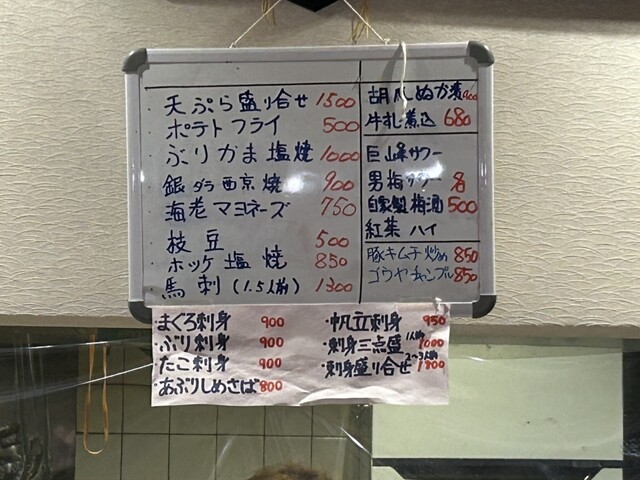 天ぷら盛り合せ 1500
ポテトフライ 500
ぶりかま塩焼 1000
銀ダラ西京焼 900
海老マヨネーズ 750
枝豆 500
ホッケ塩焼 850
馬刺(1.5人前) 1300
胡瓜ぬか漬
牛すじ煮込 680
巨峰サワー
男梅サワー 各
自家製梅酒 500
紅茶ハイ
豚キムチ炒め 850
ゴウヤチャンプル 850
・まぐろ刺身 900
・ぶり刺身 900
・たこ刺身 900
・あぶりしめさば 800
・帆立刺身 950
・刺身三点盛 1人前 1000
・刺身盛り合せ 2~3人前 1800